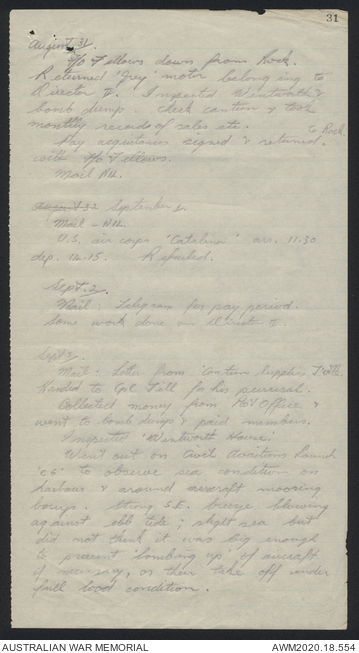 31
August 31.
F/o Fellows down from Rock.
Returned 'Grey' motor belonging to
Director II. Inspected Wentworth &
bomb dump. Check canteen & took
monthly records of sales etc. to Rock
Pay acquittances signed & returned.
with F/o Fellows.
Mail Nil.
August 32 September 1.
Mail - Nil.
U.S. air corps 'Catalina' arr. 11.30
dep. 14.15. Refueled.
Sept. 2.
Mail: Telegram for pay period.
Some work done in
Sept 3.
Mail: Letter from Canteen Supplies
Handed to Cpl Tall for his perusal.
Collected money from Post Office &
went to bomb dump & paid members.
Inspected 'Wentworth House'.
Went out on Civil Aviations launch
to observe sea condition on
harbour & around aircraft mooring
buoys. Strong S.E. breeze blowing
against ebb tide; slight sea but
did not think it was big enough
to prevent 'bombing up' of aircraft
if necessary, or their take off under
full load condition.
AUSTRALIAN WAR MEMORIAL
AWM2020.18.554